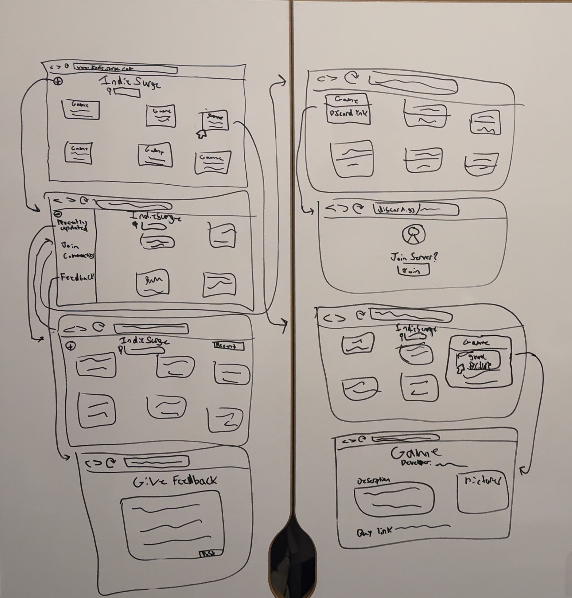 Indie Surge
Game
Game
Game
Game
Game
Game
Indie Surge
Recently
updated
Join
Community
Feedback
Indie Surge
Recent
Give Feedback
Post
Game
Discord link
discord.gg/
Join Server?
Join
Indie Surge
Game
Game
Picture
Game
Developer:
Description
Pictures
Buy link